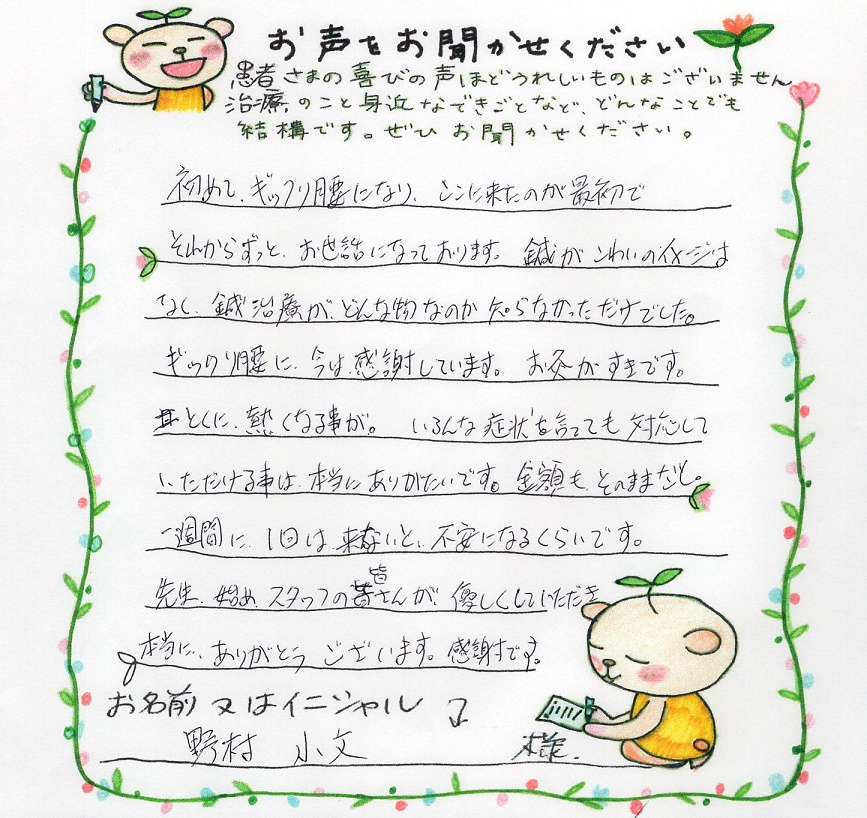 お声をお聞かせください
患者さまの喜びの声ほどうれしいものはございません
治療のこと身近なできごとなど、どんなことでも
結構です。ぜひお聞かせください。
初めて、ギックリ腰になり、ここに来たのが最初で
それからずっと、お世話になっております。鍼がこわいのイメージは
なく、鍼治療が、どんな物なのか知らなかっただけでした。
ギックリ腰に、今は、感謝しています。お灸がすきです。
とくに、熱くなる事が。いろんな症状を言っても対応して
いただける事は、本当にありがたいです。金額も、そのままだし。
一週間に、1回は、来ないと、不安になるくらいです。
先生、始め、スタッフの皆さんが、優しくしていただき
本当に、ありがとうございます。感謝です。
お名前又はイニシャル↓
野村 小文 様